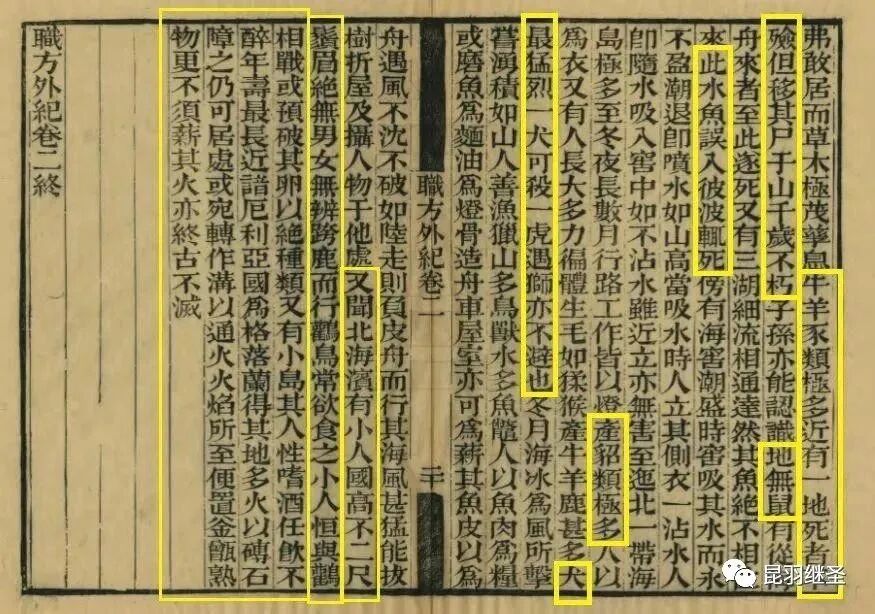 弗敢居而草木極茂華息牛羊豕類極多近有一地死者
殮但移其尸于山千歲不朽子孫亦能認識地無鼠有從海
舟來者至此遂死又有三湖細流相通達然其魚絕不相
來此水魚誤入彼波輒死傍有海窖潮盛時窖吸其水而永
不盈潮退卽噴水如山高當吸水時人立其側衣一沾水人
卽隨水吸入窖中如不沾水雖近立亦無害至迤北一帶海
島極多至冬夜長數月行路工作皆以燈產貂類極多人以
爲衣又有人長大多力徧體生毛如猱猴產牛羊鹿甚多犬
最猛烈一犬可殺一虎遇獅亦不避也冬月海冰爲風所擊
嘗湧積如山人善漁獵山多鳥獸水多魚鼈人以魚肉爲糧
或磨魚爲麵油爲燈骨造舟車屋室亦可爲薪其魚皮以爲
職方外紀卷二
二十
舟遇風不沈不破如陸走則負皮舟而行其海風甚猛能拔
樹折屋及攝人物于他處又聞北海濱有小人國高不二尺
鬚眉絕無男女無辨跨鹿而行鸛鳥常欲食之小人恒與鸛
相戰或預破其卵以絕種類又有小島其人性嗜酒任飲不
醉年壽最長近諳厄利亞國爲格落蘭得其地多火以磚石
障之仍可居處或宛轉作溝以通火火焰所至便置釜甑熟
物更不須薪其火亦終古不滅
職方外紀卷二終
昆羽继圣